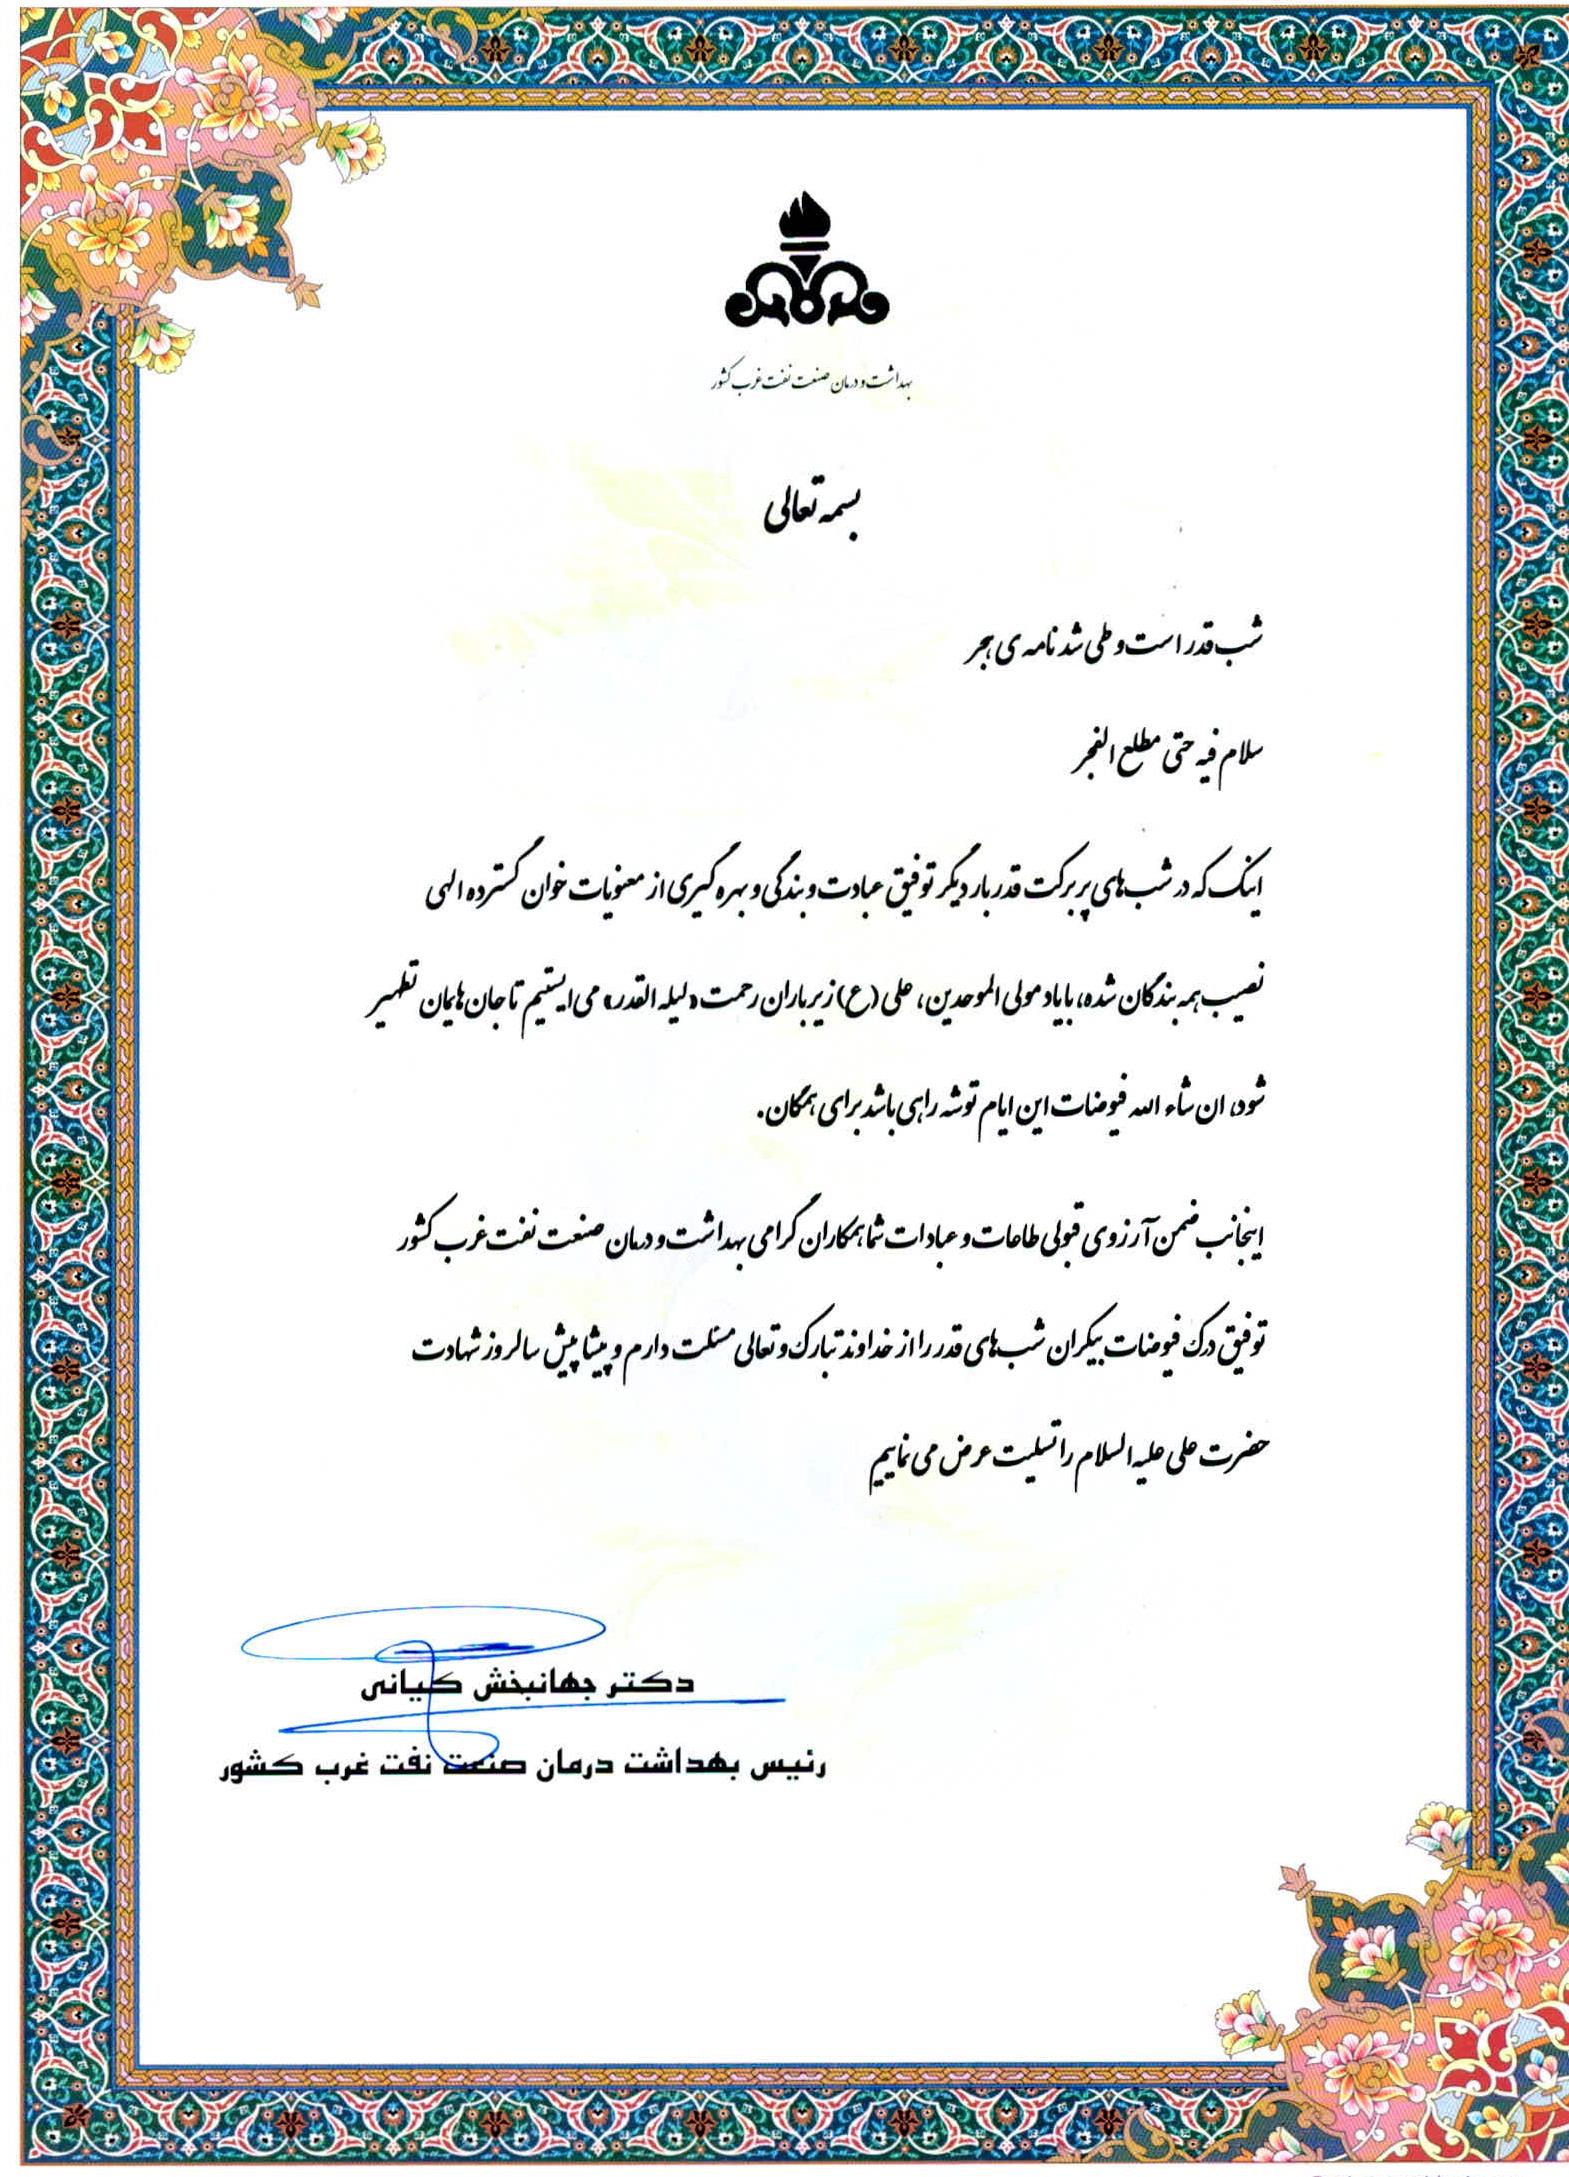 بهداشت و درمان صنعت نفت غرب کشور
بسمه تعالی
شب قدر است و طی شد نامه ی هجر
سلام فیه حتی مطلع الفجر
اینک که در شب های پر برکت قدر بار دیگر توفیق عبادت و بندگی و بهره گیری از معنویات خوان گسترده الهی
نصیب همه بندگان شده، با یاد مولی الموحدین، علی (ع) زیر باران رحمت «لیله القدر» می ایستیم تا جان هایمان تطهیر
شود، ان شاء الله فیوضات این ایام توشه راهی باشد برای همگان.
اینجانب ضمن آرزوی قبولی طاعات و عبادات شما همکاران گرامی بهداشت و درمان صنعت نفت غرب کشور
توفیق درک فیوضات بیکران شب های قدر را از خداوند تبارک و تعالی مسئلت دارم و پیشاپیش سالروز شهادت
حضرت علی علیه السلام را تسلیت عرض می نماییم
دکتر جهانبخش کیانی
رئیس بهداشت درمان صنعت نفت غرب کشور